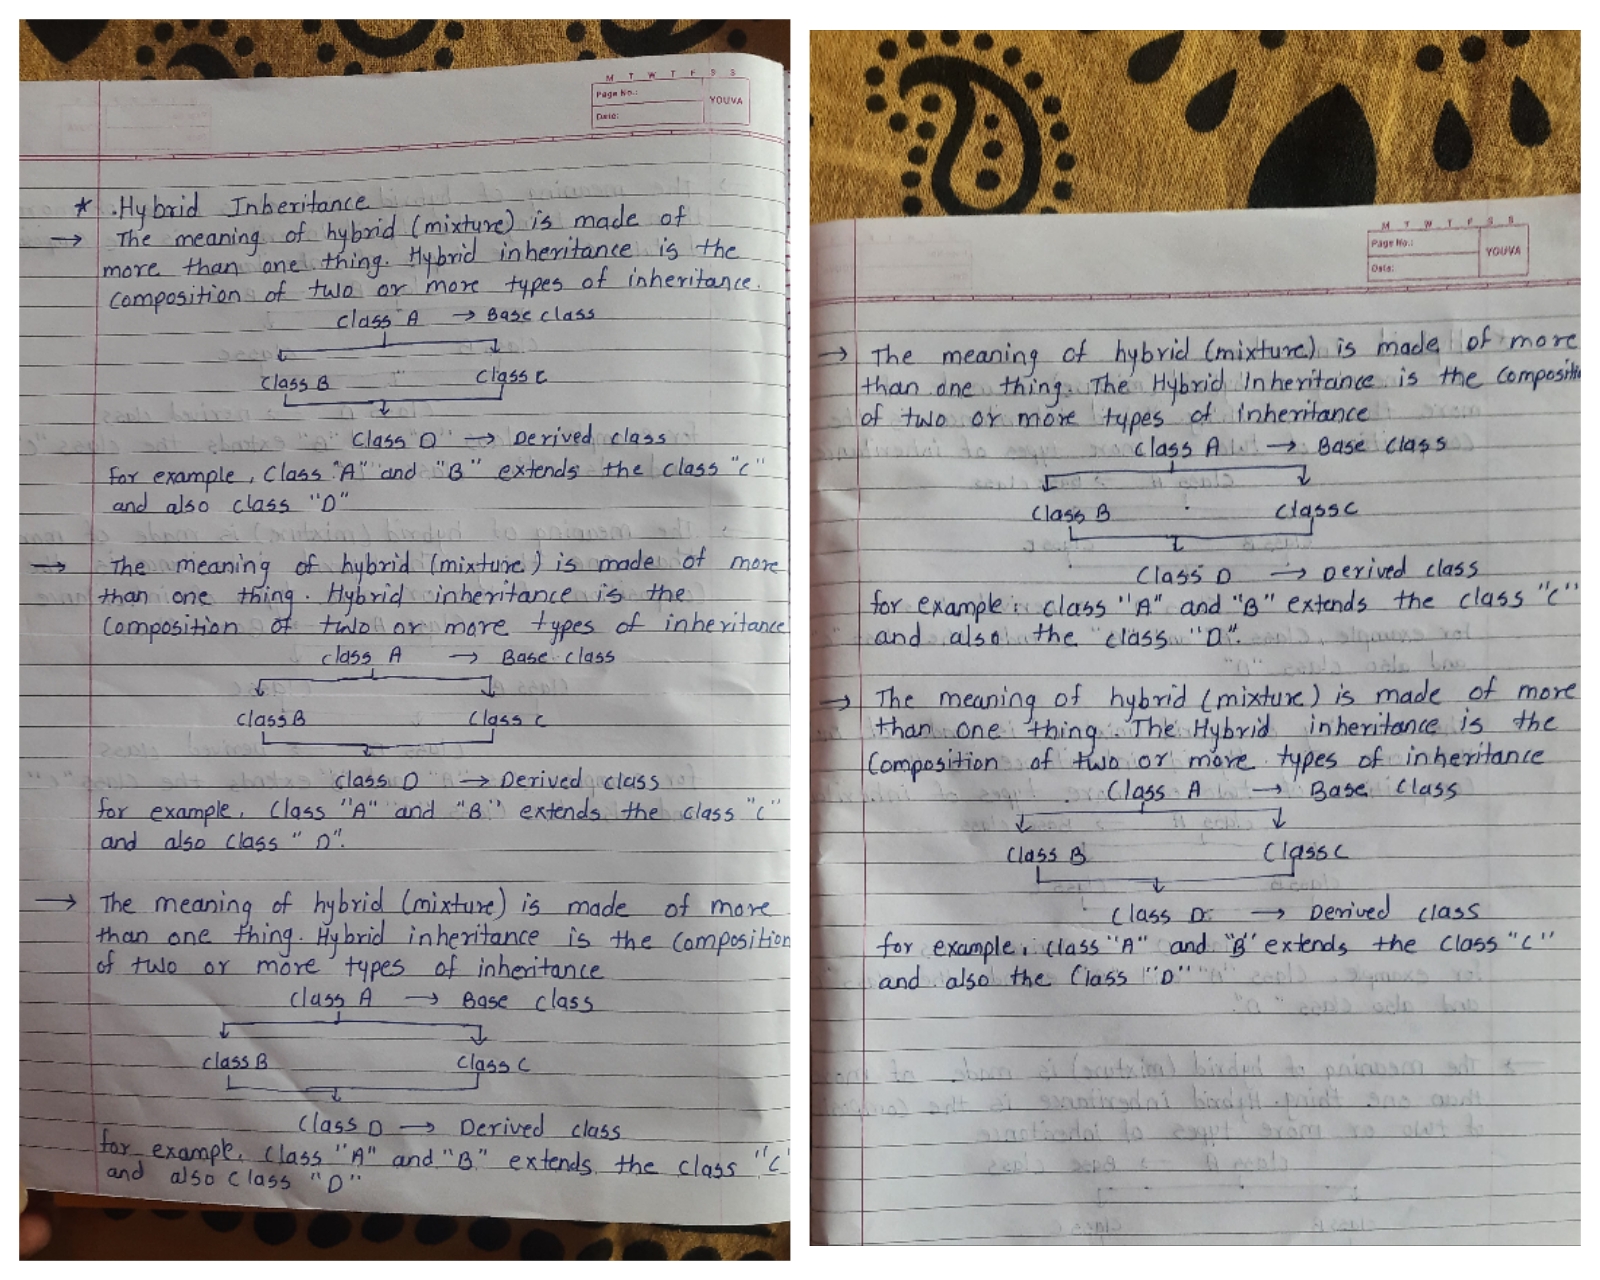 M T W T F S S
Page No.:
YOUVA
Date:
* Hybrid Inheritance
→ The meaning of hybrid (mixture) is made of
more than one thing. Hybrid inheritance is the
composition of two or more types of inheritance.
class A → Base class
class B class C
class D → Derived class
for example, class "A" and "B" extends the class "C"
and also class "D"
→ The meaning of hybrid (mixture) is made of more
than one thing. Hybrid inheritance is the
composition of two or more types of inheritance
class A → Base class
class B class C
class D → Derived class
for example, class "A" and "B" extends the class "C"
and also class "D".
→ The meaning of hybrid (mixture) is made of more
than one thing. Hybrid inheritance is the composition
of two or more types of inheritance
class A → Base class
class B class C
class D → Derived class
for example, class "A" and "B" extends the class "C
and also class "D"
M T W T F S S
Page No.:
YOUVA
Date:
→ The meaning of hybrid (mixture) is made of more
than one thing. The Hybrid Inheritance is the compositi
of two or more types of inheritance
class A → Base class
class B class C
class D → Derived class
for example, class "A" and "B" extends the class "C"
and also the class "D".
→ The meaning of hybrid (mixture) is made of more
than one thing. The Hybrid inheritance is the
composition of two or more types of inheritance
class A → Base class
class B class C
class D → Derived class
for example, class "A" and "B" extends the class "C"
and also the class "D"